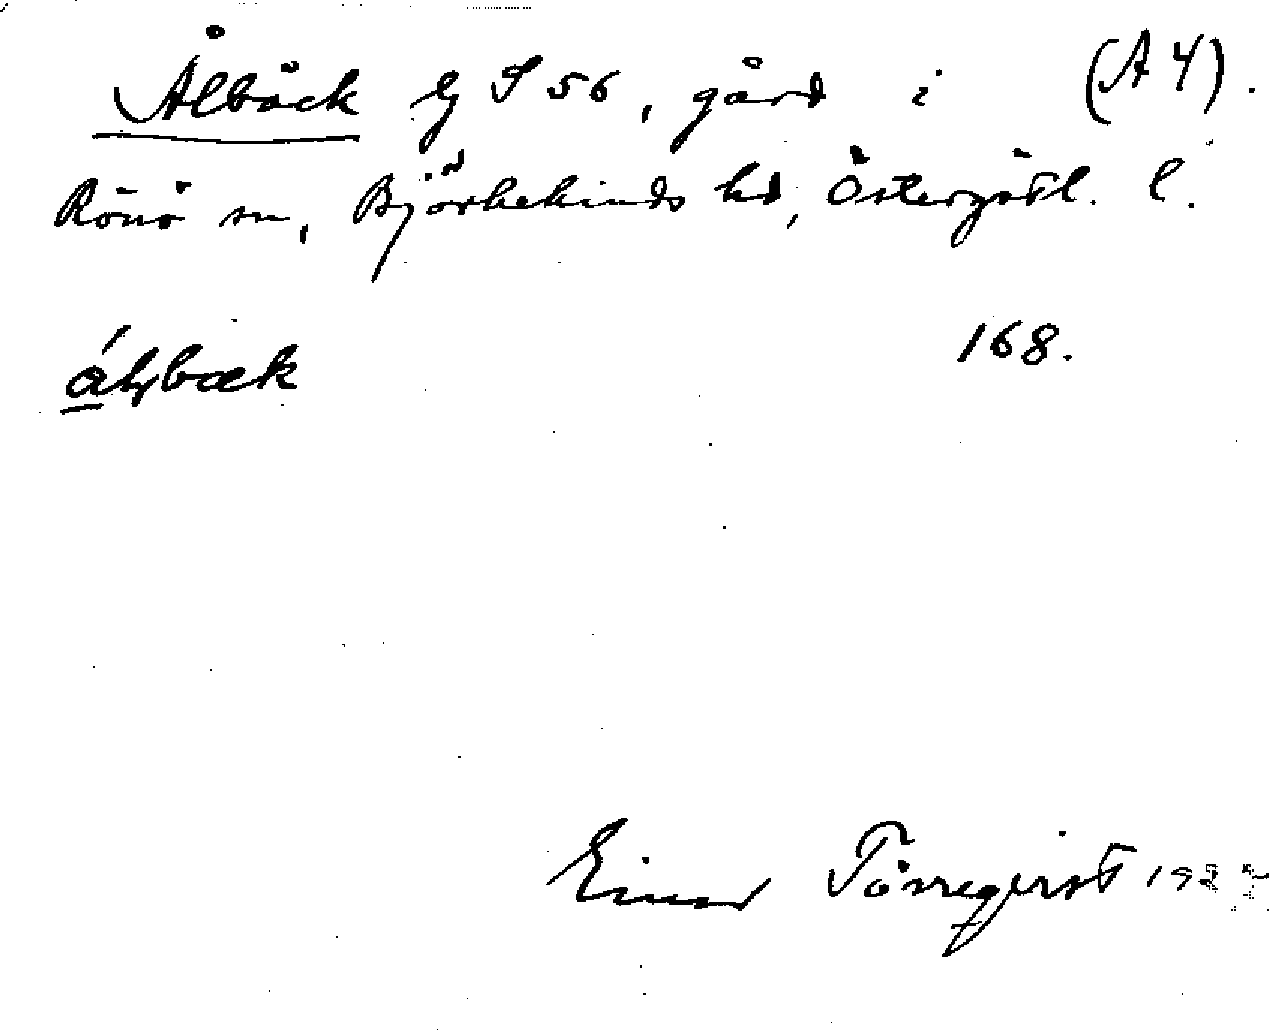 Ålbäck Ej S 56, gård i (A 4).
Rönö sn, Björkekinds hd, Östergötl. l.
168.
Einar Törneqvist 192